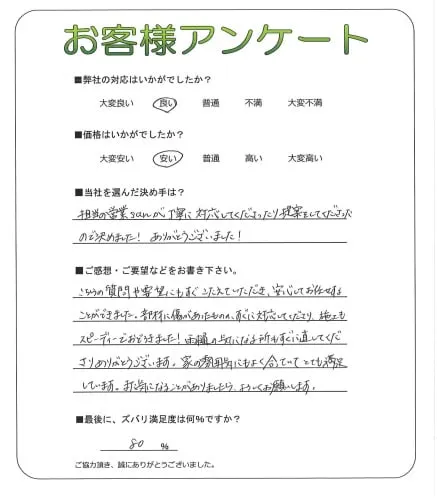 お客様アンケート
■弊社の対応はいかがでしたか？
大変良い 良い 普通 不満 大変不満
■価格はいかがでしたか？
大変安い 安い 普通 高い 大変高い
■当社を選んだ決め手は？
担当の営業sanが丁寧に対応してくださったり提案をしてくださった
ので決めました！ ありがとうございました！
■ご感想・ご要望などをお書き下さい。
こちらの質問や要望にもすぐこたえていただき、安心してお任せする
ことができました。部材に傷があたものの、すぐに対応してくださり、施工も
スピーディーでおどろきました！雨樋の気になる所もすぐに直してくだ
さりありがとうございます。家の雰囲気にもよく合っていてとても満足
しています。また気になることがありましたら、よろしくお願いします。
■最後に、ズバリ満足度は何%ですか？
80 %
ご協力頂き、誠にありがとうございました。